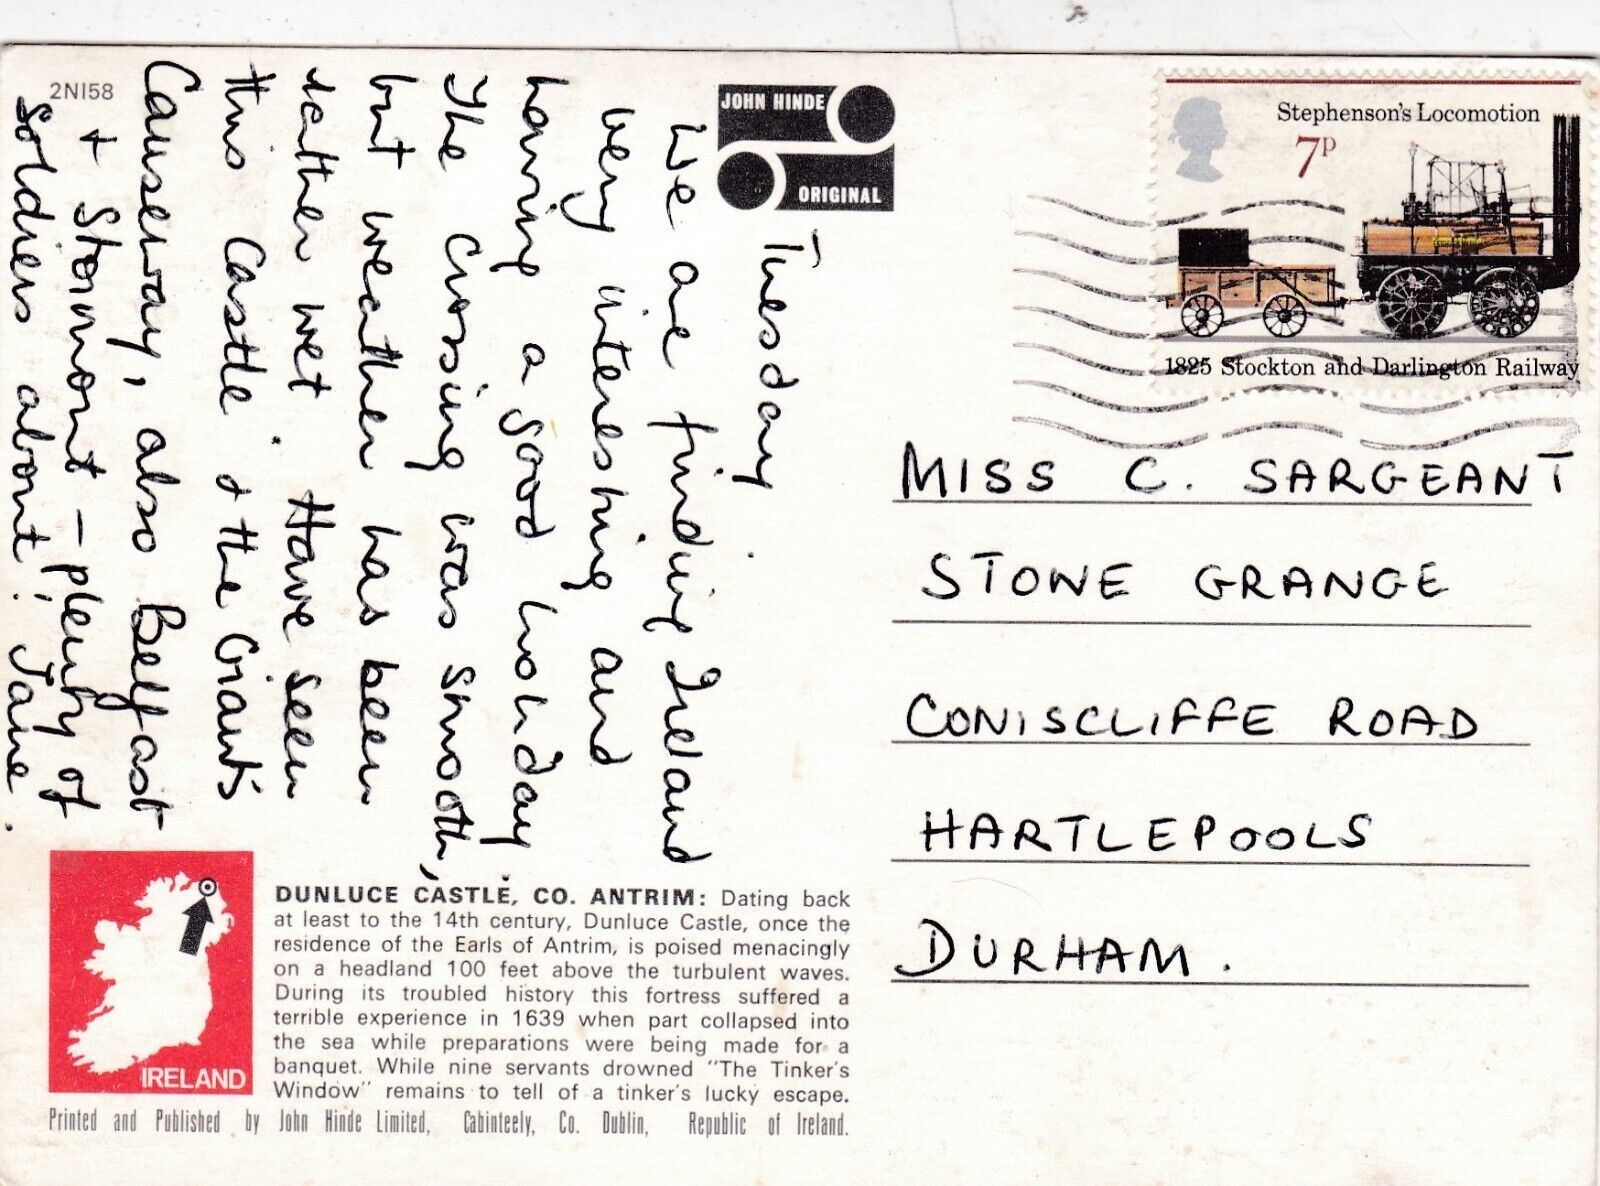 2NI58
JOHN HINDE
ORIGINAL
Tuesday
We are finding Ireland
very interesting and
having a good holiday
The crossing was smooth,
but weather has been
rather wet. Have seen
this Castle & the Giant's
Causeway, also Belfast
+ Stormont - plenty of
soldiers about! Jane.
Stephenson's Locomotion
7p
1825 Stockton and Darlington Railway
MISS C. SARGEANT
STONE GRANGE
CONISCLIFFE ROAD
HARTLEPOOLS
DURHAM.
IRELAND
DUNLUCE CASTLE, CO. ANTRIM: Dating back
at least to the 14th century, Dunluce Castle, once the
residence of the Earls of Antrim, is poised menacingly
on a headland 100 feet above the turbulent waves.
During its troubled history this fortress suffered a
terrible experience in 1639 when part collapsed into
the sea while preparations were being made for a
banquet. While nine servants drowned "The Tinker's
Window" remains to tell of a tinker's lucky escape.
Printed and Published by John Hinde Limited, Cabinteely, Co. Dublin, Republic of Ireland.